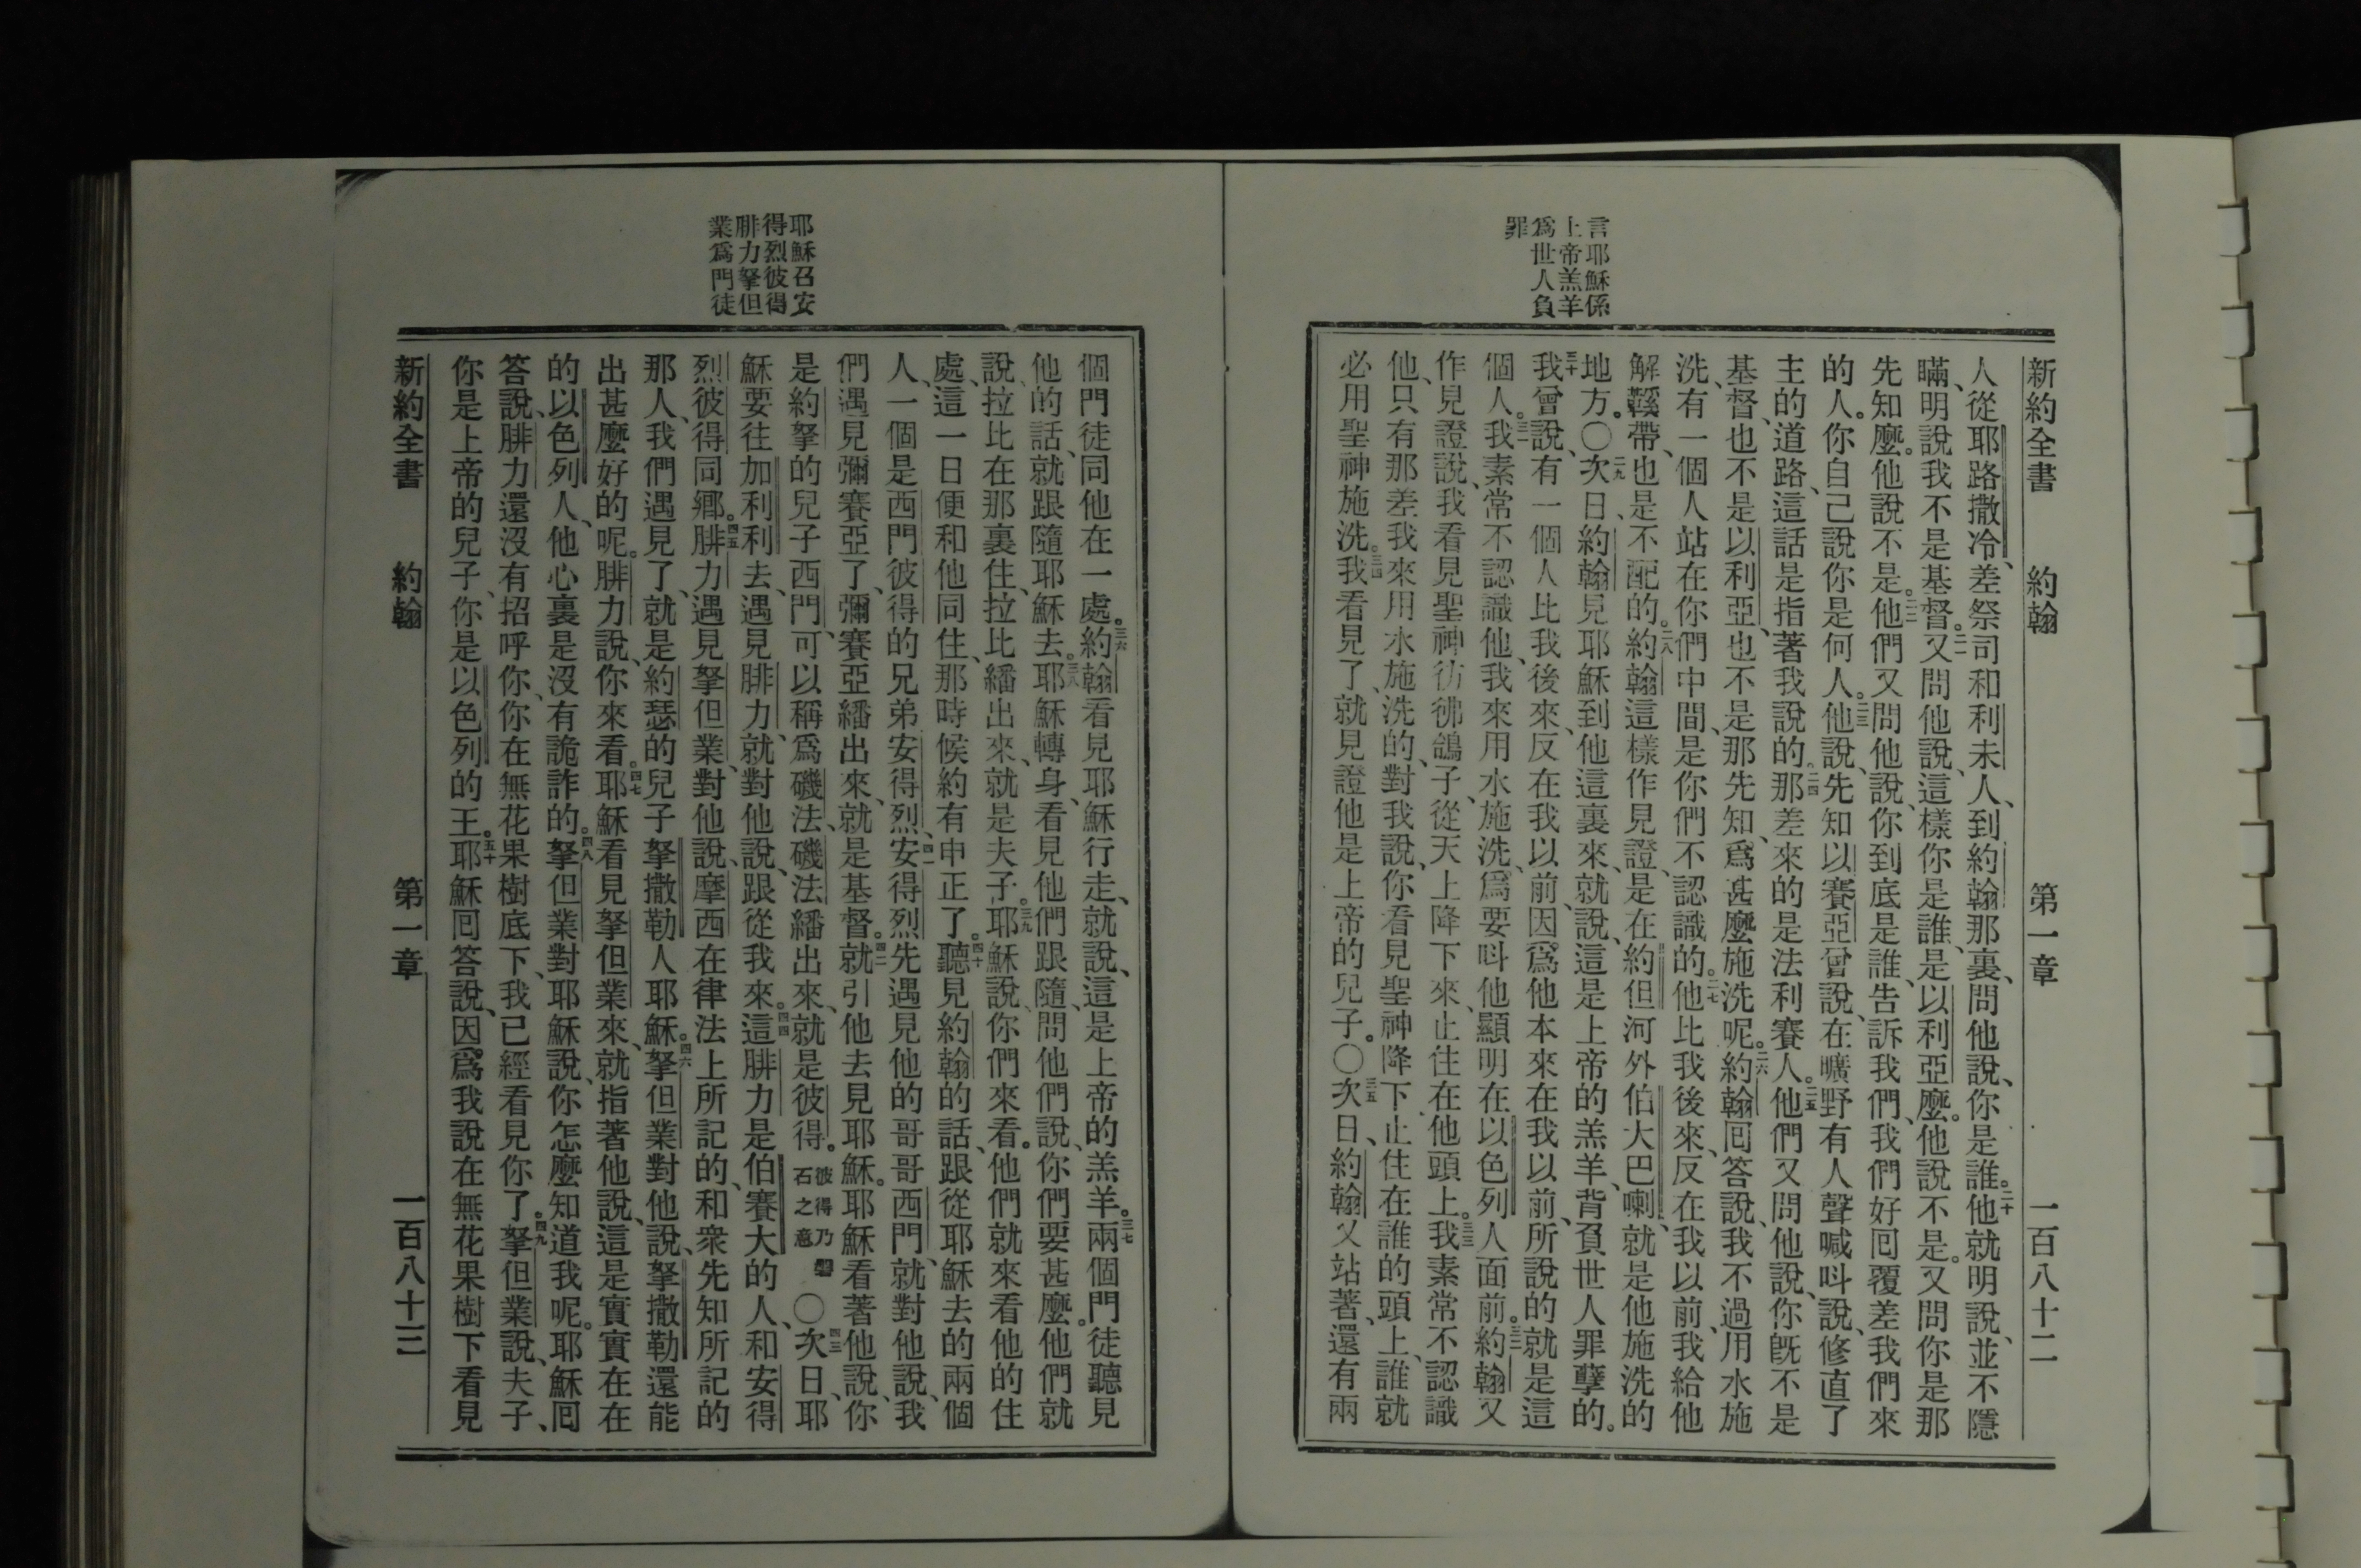 新約全書 約翰 第一章 一百八十二
言耶穌係
上帝羔羊
爲世人負
罪
人、從耶路撒冷、差祭司和利未人、到約翰那裏、問他說、你是誰。二十他就明說、並不隱
瞞、明說我不是基督。二一又問他說、這樣你是誰、是以利亞麼。他說不是。又問你是那
先知麼。他說不是。二二他們又問他說、你到底是誰、告訴我們、我們好囘覆差我們來
的人。你自己說你是何人。二三他說、先知以賽亞曾說、在曠野有人聲喊呌說、修直了
主的道路、這話是指著我說的。二四那差來的是法利賽人。二五他們又問他說、你旣不是
基督、也不是以利亞、也不是那先知、爲甚麼施洗呢。二六約翰囘答說、我不過用水施
洗、有一個人站在你們中間、是你們不認識的。二七他比我後來、反在我以前、我給他
解鞵帶、也是不配的。二八約翰這樣作見證、是在約但河外伯大巴喇、就是他施洗的
地方。〇二九次日、約翰見耶穌到他這裏來、就說、這是上帝的羔羊、背負世人罪孽的。
三十我曾說、有一個人比我後來、反在我以前、因爲他本來在我以前、所說的就是這
個人。三一我素常不認識他、我來用水施洗、爲要呌他顯明在以色列人面前。三二約翰又
作見證說、我看見聖神彷彿鴿子、從天上降下來、止住在他頭上。三三我素常不認識
他、只有那差我來用水施洗的、對我說、你看見聖神降下止住在誰的頭上、誰就
必用聖神施洗。三四我看見了、就見證他是上帝的兒子。〇三五次日、約翰又站著、還有兩
耶穌召安
得烈彼得
腓力拏但
業爲門徒
個門徒同他在一處。三六約翰看見耶穌行走、就說、這是上帝的羔羊。三七兩個門徒聽見
他的話、就跟隨耶穌去。三八耶穌轉身、看見他們跟隨、問他們說、你們要甚麼。他們就
說、拉比在那裏住、拉比繙出來、就是夫子。三九耶穌說、你們來看。他們就來看他的住
處、這一日便和他同住、那時候約有申正了。四十聽見約翰的話、跟從耶穌去的兩個
人、一個是西門彼得的兄弟安得烈、四一安得烈先遇見他的哥哥西門、就對他說、我
們遇見彌賽亞了、彌賽亞繙出來、就是基督。四二就引他去見耶穌。耶穌看著他說、你
是約拏的兒子西門、可以稱爲磯法、磯法繙出來、就是彼得。彼得乃磐石之意〇四三次日、耶
穌要往加利利去、遇見腓力、就對他說、跟從我來。四四這腓力是伯賽大的人、和安得
烈彼得同鄉。四五腓力遇見拏但業、對他說、摩西在律法上所記的、和衆先知所記的
那人、我們遇見了、就是約瑟的兒子拏撒勒人耶穌。四六拏但業對他說、拏撒勒還能
出甚麼好的呢。腓力說、你來看。四七耶穌看見拏但業來、就指著他說、這是實實在在
的以色列人、他心裏是沒有詭詐的。四八拏但業對耶穌說、你怎麼知道我呢。耶穌囘
答說、腓力還沒有招呼你、你在無花果樹底下、我已經看見你了。四九拏但業說、夫子、
你是上帝的兒子、你是以色列的王。五十耶穌囘答說、因爲我說在無花果樹下看見
新約全書 約翰 第一章 一百八十三